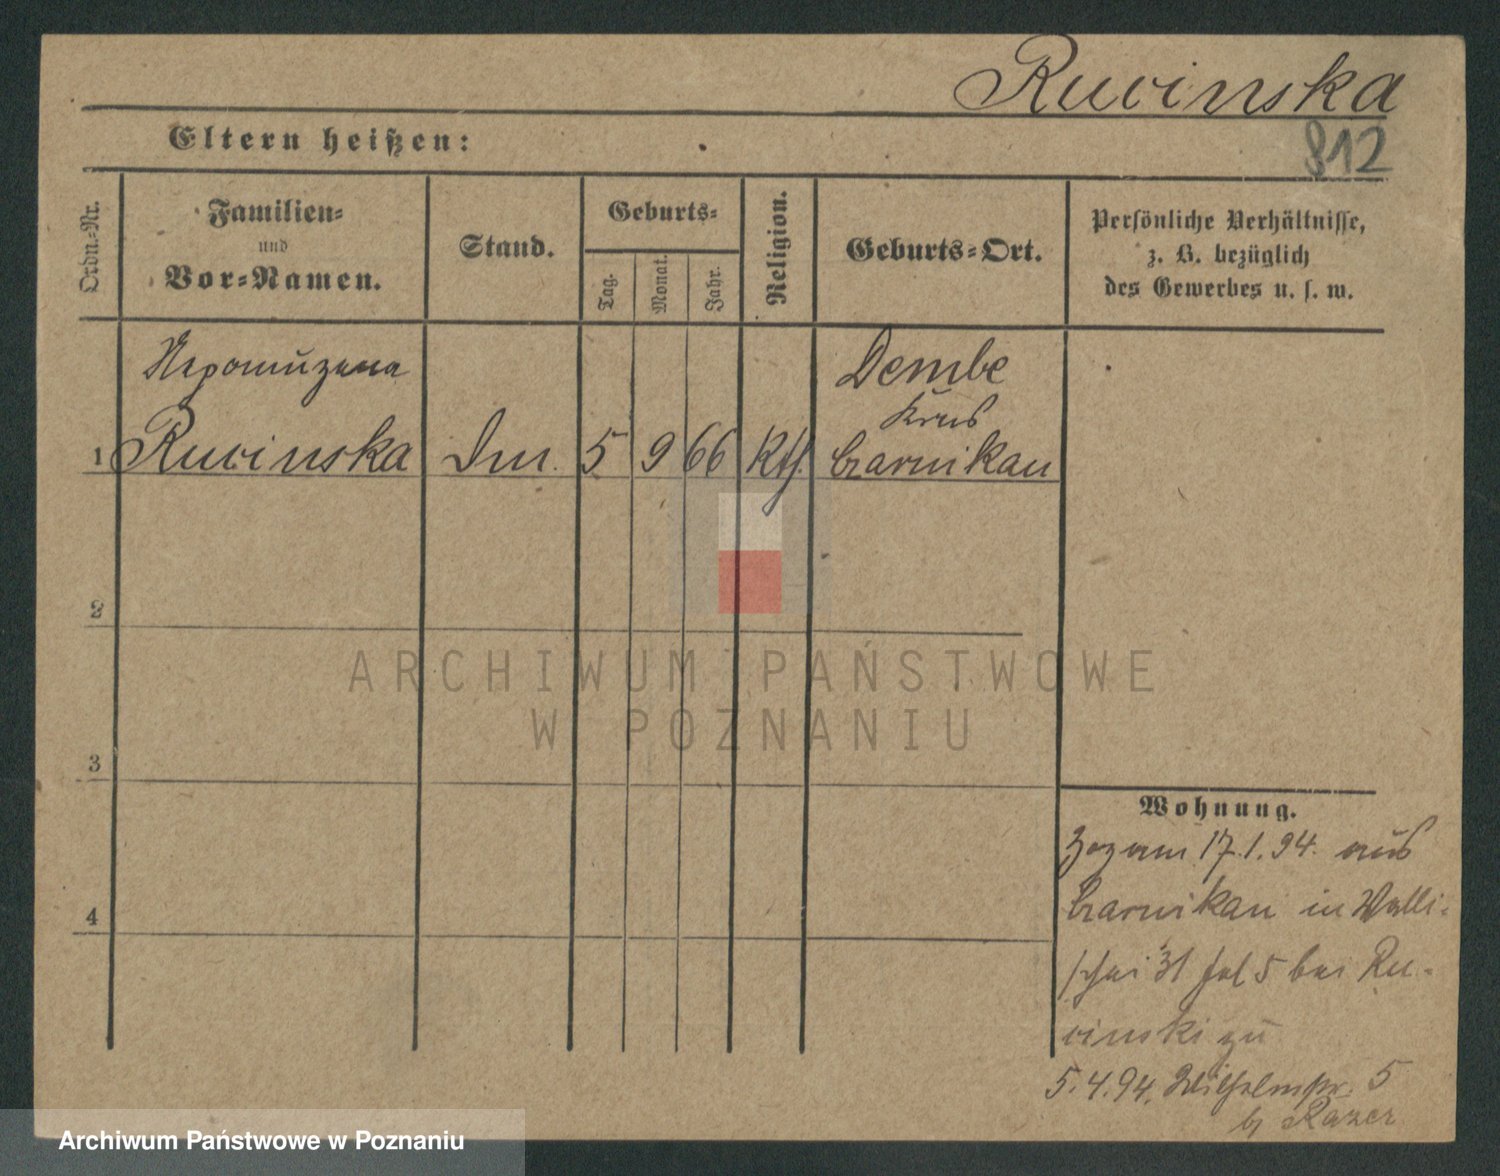 Rucinska
812
Eltern heißen:
Ordn.-Nr.
Familien-
und
Vor-Namen.
Stand.
Geburts-
Tag.
Monat.
Jahr.
Religion.
Geburts-Ort.
Persönliche Verhältnisse,
z. B. bezüglich
des Gewerbes u. s. w.
Nepomuzena
Dembe
Kreis
1 Rucinska 5 9 66 Kth. Czarnikau
2
3
4
Wohnung.
Zog am 17.1.94. aus
Czarnikau in Walli-
schei 31 fol 5 bei Ru-
cinski zu
5.4.94. Wilhelmstr. 5
ARCHIWUM PAŃSTWOWE
W POZNANIU
Archiwum Państwowe w Poznaniu